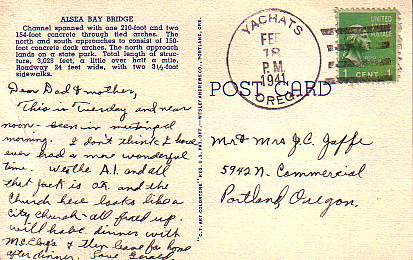 ALSEA BAY BRIDGE
Channel spanned with one 210-foot and two
154-foot concrete through tied arches. The
north and south approaches to consist of 150-
foot concrete deck arches. The north approach
lands on a state park. Total length of struc-
ture, 3,028 feet, a little over a half a mile.
Roadway 24 feet wide, with two 3½-foot
sidewalks.
Dear Dad & mother,
This is Tuesday and near
noon
morning. I don't think I have
ever had a more wonderful
time. Weather A.1. and all
that Jack is O.K. and the
Church here looks like a
city Church all fixed up.
will have dinner with
& then leave for home
after dinner. Love Gerald
YACHATS
FEB
18
P.M.
1941
OREG.
UNITED STATES
1 CENT
POST CARD
Mr & Mrs J.C. Jaffe
5942 N. Commercial
Portland, Oregon.